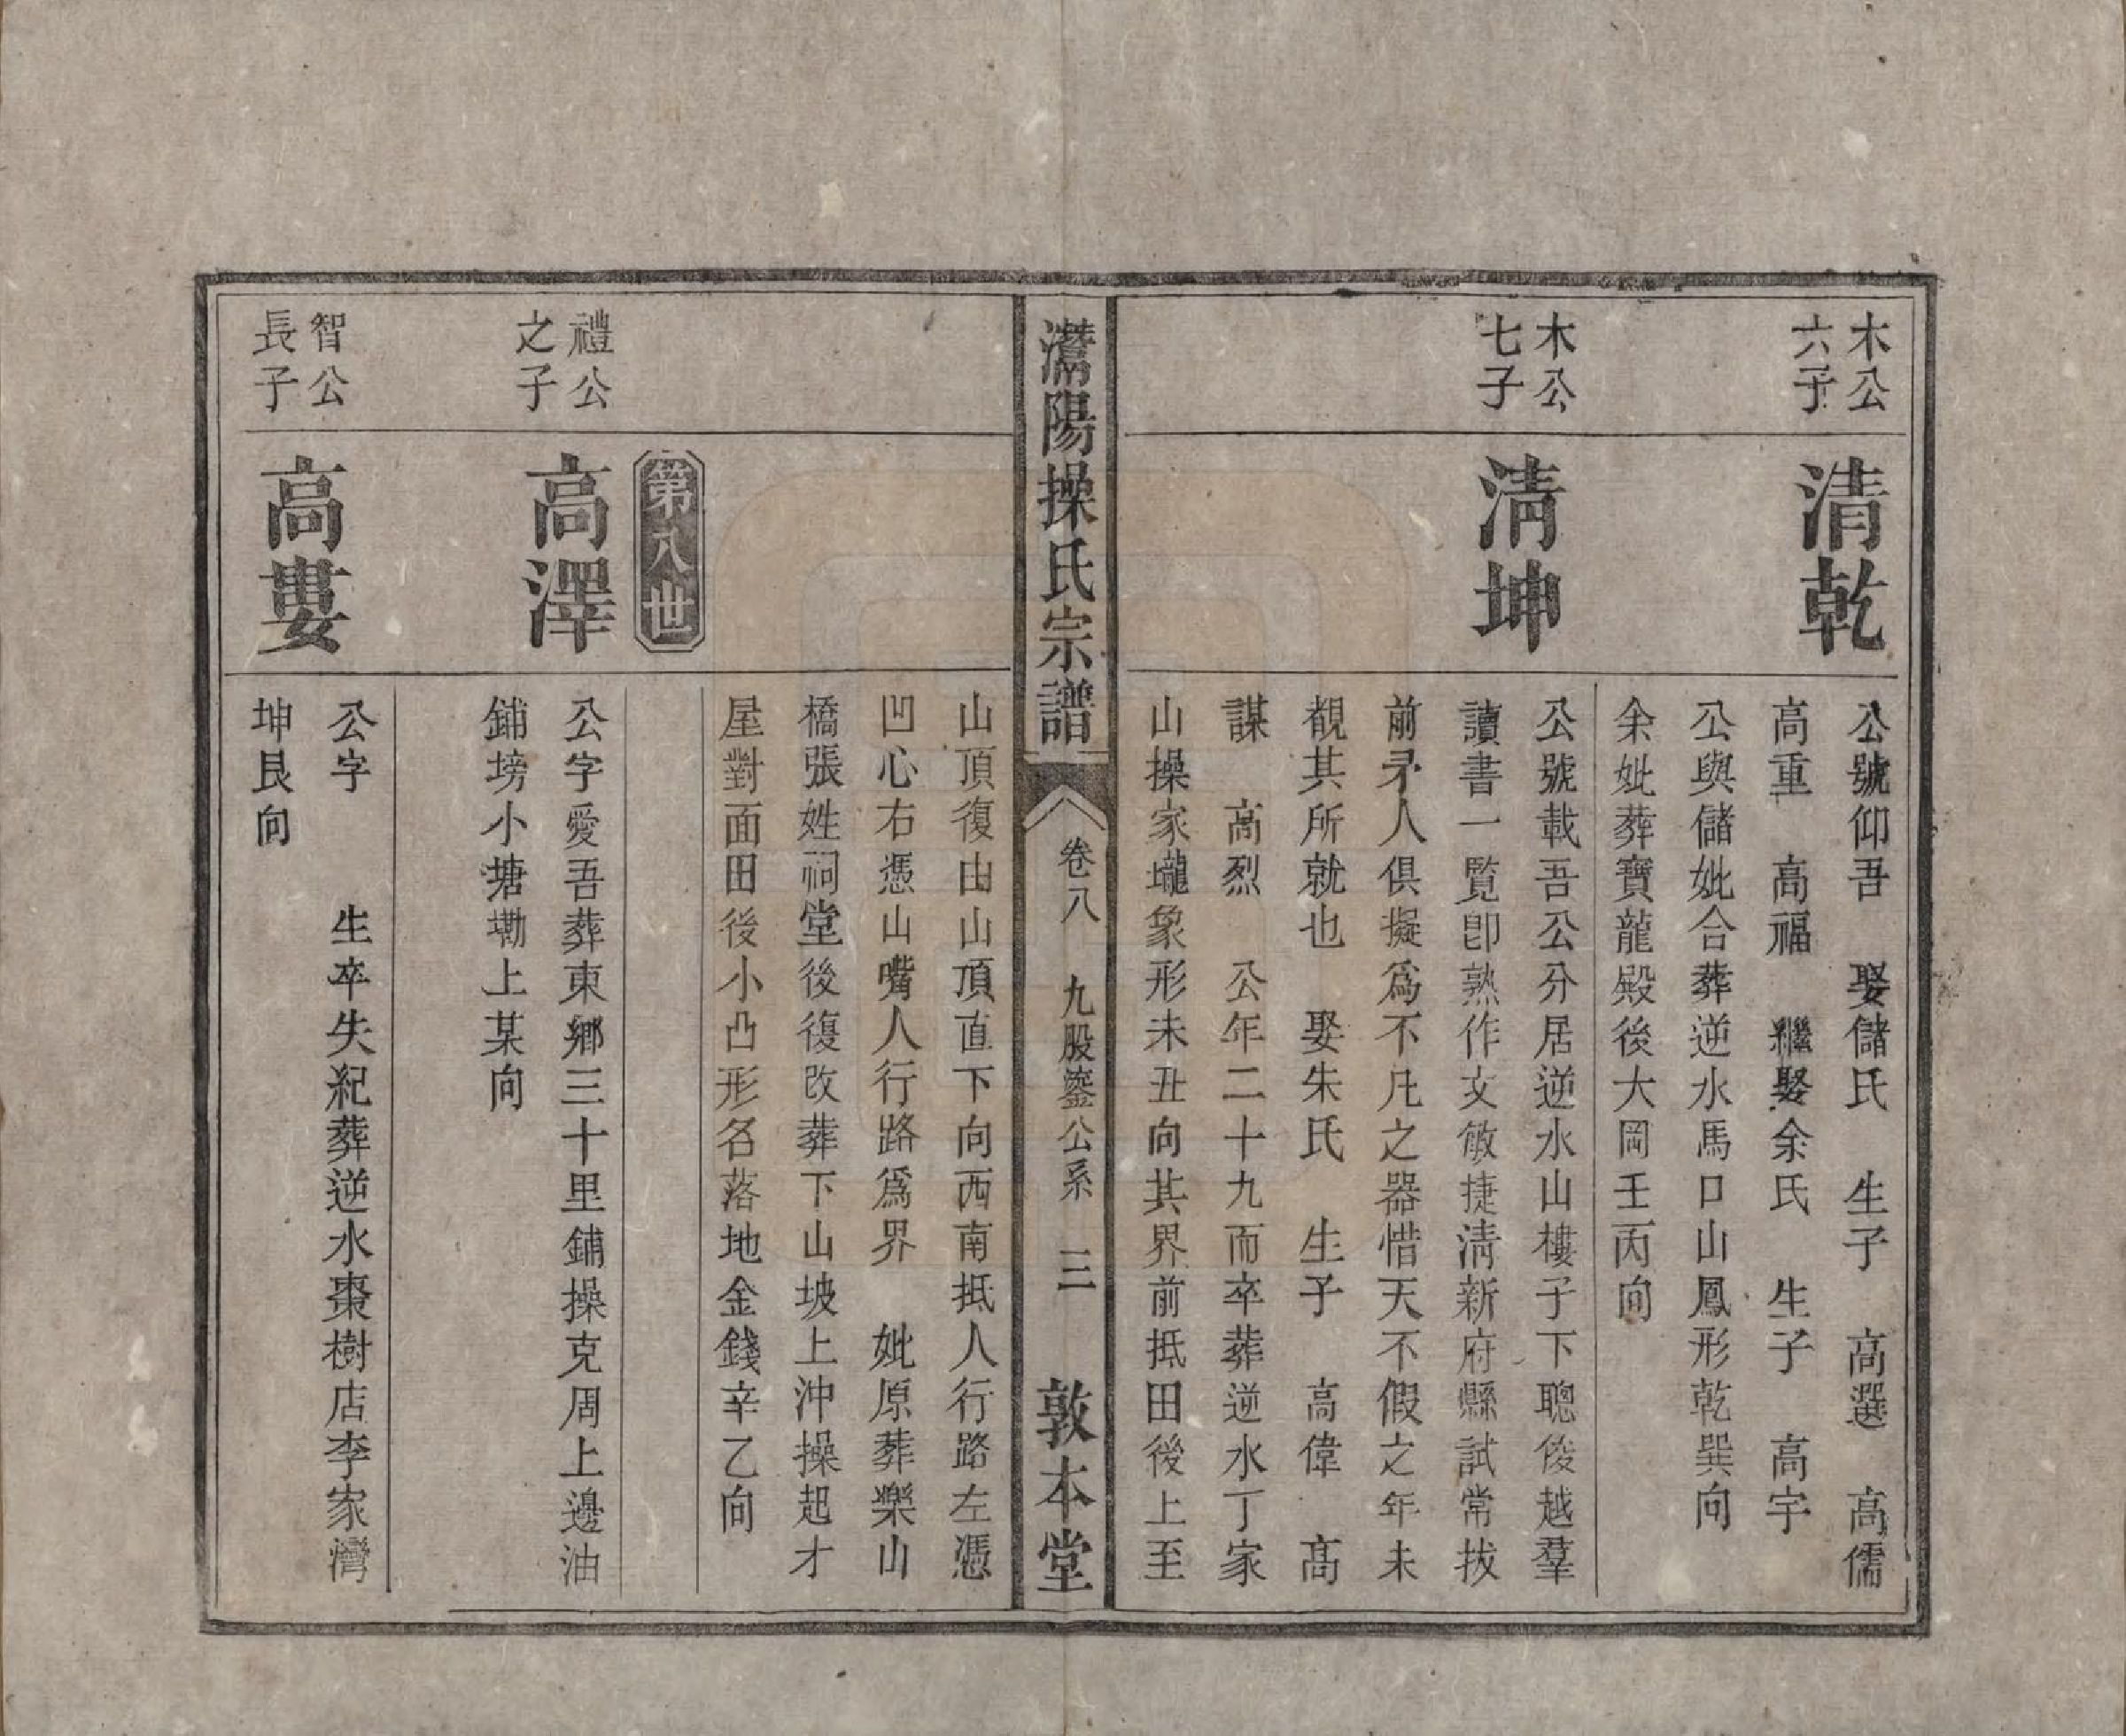 木公
六子
清乾
公號仰吾　娶儲氏　生子　高選　高儒
高重　高福　繼娶余氏　生子　高宇
公與儲妣合葬逆水馬口山鳳形乾巽向
余妣葬寶龍殿後大岡壬丙向
木公
七子
淸坤
公號載吾公分居逆水山樓子下聰俊越羣
讀書一覽卽熟作文敏捷淸新府縣試常拔
前矛人俱擬爲不凡之器惜天不假之年未
覩其所就也　娶朱氏　生子　高偉　高
謀　高烈　公年二十九而卒葬逆水丁家
山操家壠象形未丑向其界前抵田後上至
灊陽操氏宗譜
卷八　九股鎣公系　三
敦本堂
山頂復由山頂直下向西南抵人行路左憑
凹心右憑山嘴人行路爲界　妣原葬樂山
橋張姓祠堂後復改葬下山坡上沖操起才
屋對面田後小凸形名落地金錢辛乙向
第八世
禮公
之子
高澤
公字愛吾葬東鄉三十里鋪操克周上邊油
鋪塝小塘墈上某向
智公
長子
高婁
公字　　生卒失紀葬逆水棗樹店李家灣
坤艮向